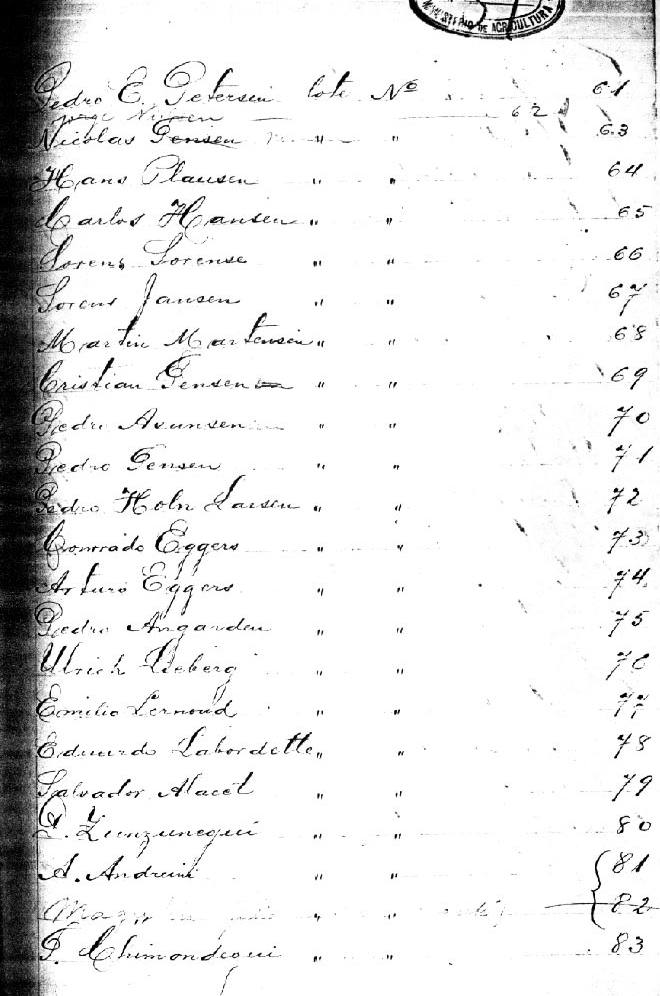 MINISTERIO DE AGRICULTURA
Pedro E. Petersen lote Nº 61
Jorge 62
Nicolas Gensen " " 63
Hans Plausen " " 64
Carlos Hansen " " 65
Lorens Lorense " " 66
Lorens Jansen " " 67
Martin Martensen " " 68
Cristian Gensen " " 69
Pedro Asunsen " " 70
Pedro Gensen " " 71
Pedro Holn Larsen " " 72
Conrrado Eggers " " 73
Arturo Eggers " " 74
Pedro Angarden " " 75
Ulrich Lieberg " " 76
Emilio Lernoud " " 77
Eduardo Labordette " " 78
Salvador Alacet " " 79
P. Zunzunegui " " 80
A. Andreini " " 81
" " 82
F. Chimondegui " " 83